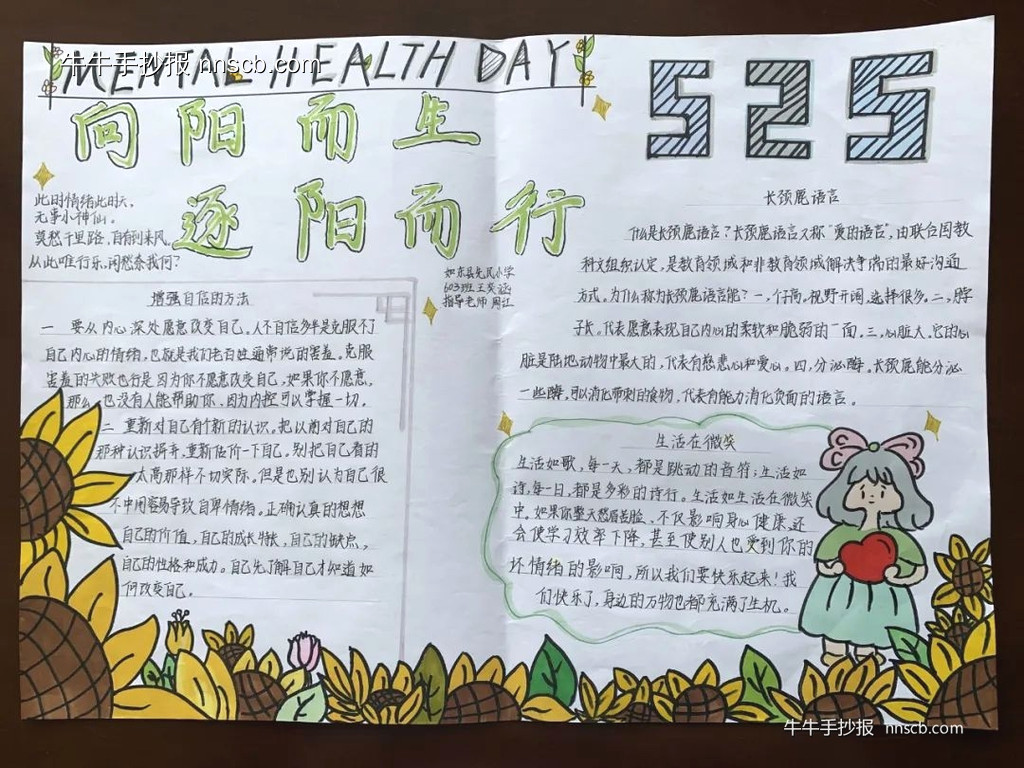 MENTAL HEALTH DAY
牛牛手抄报 nnscb.com
525
向阳而生
逐阳而行
此时情绪此时天,
无事小神仙。
莫愁千里路,自有到来风。
从此唯行乐,闲愁奈我何?
如东县先民小学
603班 王奕涵
指导老师 周红
增强自信的方法
一 要从内心深处愿意改变自己。人不自信多半是克服不了
自己内心的情绪,也就是我们老百姓通常说的害羞。克服
害羞的失败也行是因为你不愿意改变自己,如果你不愿意,
那么,也没有人能帮助你,因为内控可以掌握一切。
二 重新对自己有个新的认识。把以前对自己的
那种认识摒弃,重新估价一下自己。别把自己看的
太高那样不切实际。但是也别认为自己很
不中用容易导致自卑情绪。正确认真的想想
自己的价值,自己的成长特长,自己的缺点,
自己的性格和成功。自己先了解自己才知道如
何改变自己。
长颈鹿语言
什么是长颈鹿语言?长颈鹿语言又称“爱的语言”,由联合国教
科文组织认定,是教育领域和非教育领域解决争端的最好沟通
方式。为什么称为长颈鹿语言呢?一,个子高。视野开阔,选择很多。二,脖
子长。代表愿意表现自己内心的柔软和脆弱的一面。三,心脏大。它的心
脏是陆地动物中最大的,代表有慈悲心和爱心。四,分泌酶。长颈鹿能分泌
一些酶,可以消化带刺的食物,代表有能力消化负面的语言。
生活在微笑
生活如歌,每一天,都是跳动的音符;生活如
诗,每一日,都是多彩的诗行。生活如生活在微笑
中。如果你整天愁眉苦脸,不仅影响身心健康,还
会使学习效率下降,甚至使别人也受到你的
坏情绪的影响,所以我们要快乐起来!我
们快乐了,身边的万物也都充满了生机。
牛牛手抄报 nnscb.com